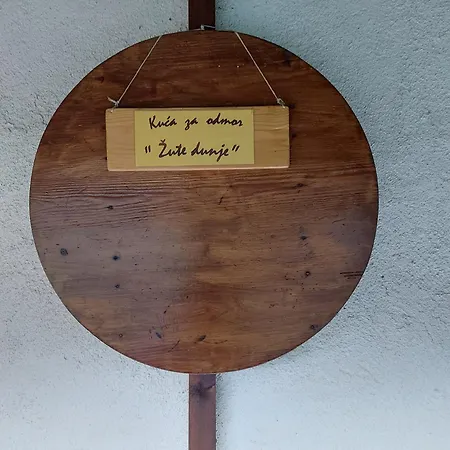 Kuća za odmor
"Žute dunje"